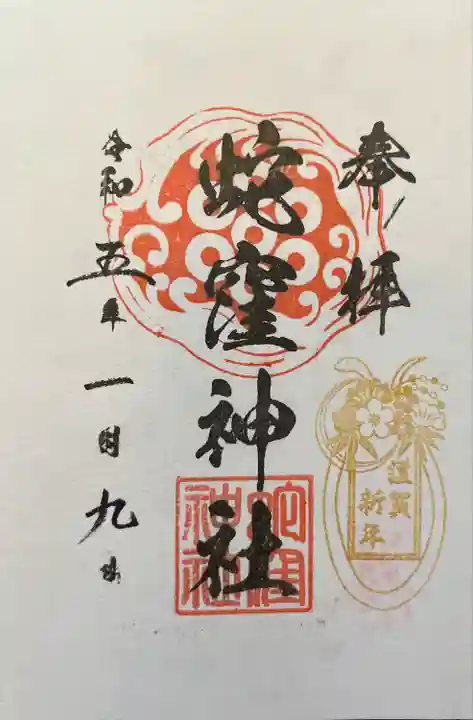 奉拝
蛇窪神社
令和五年一月九日
蛇窪神社
謹賀
新年